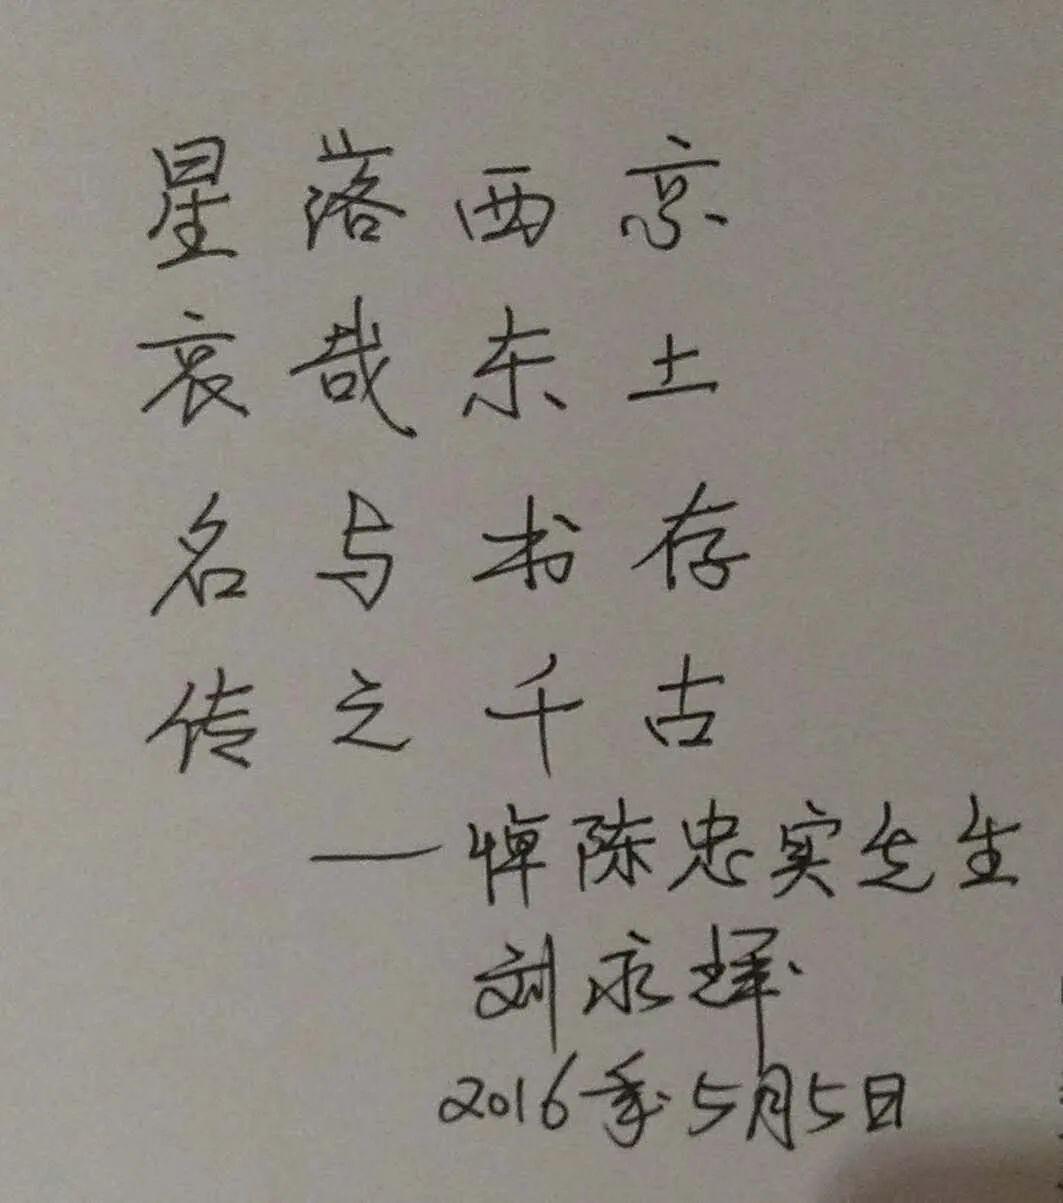 星落西京
哀哉东土
名与书存
传之千古
——悼陈忠实先生
刘永辉
2016年5月5日